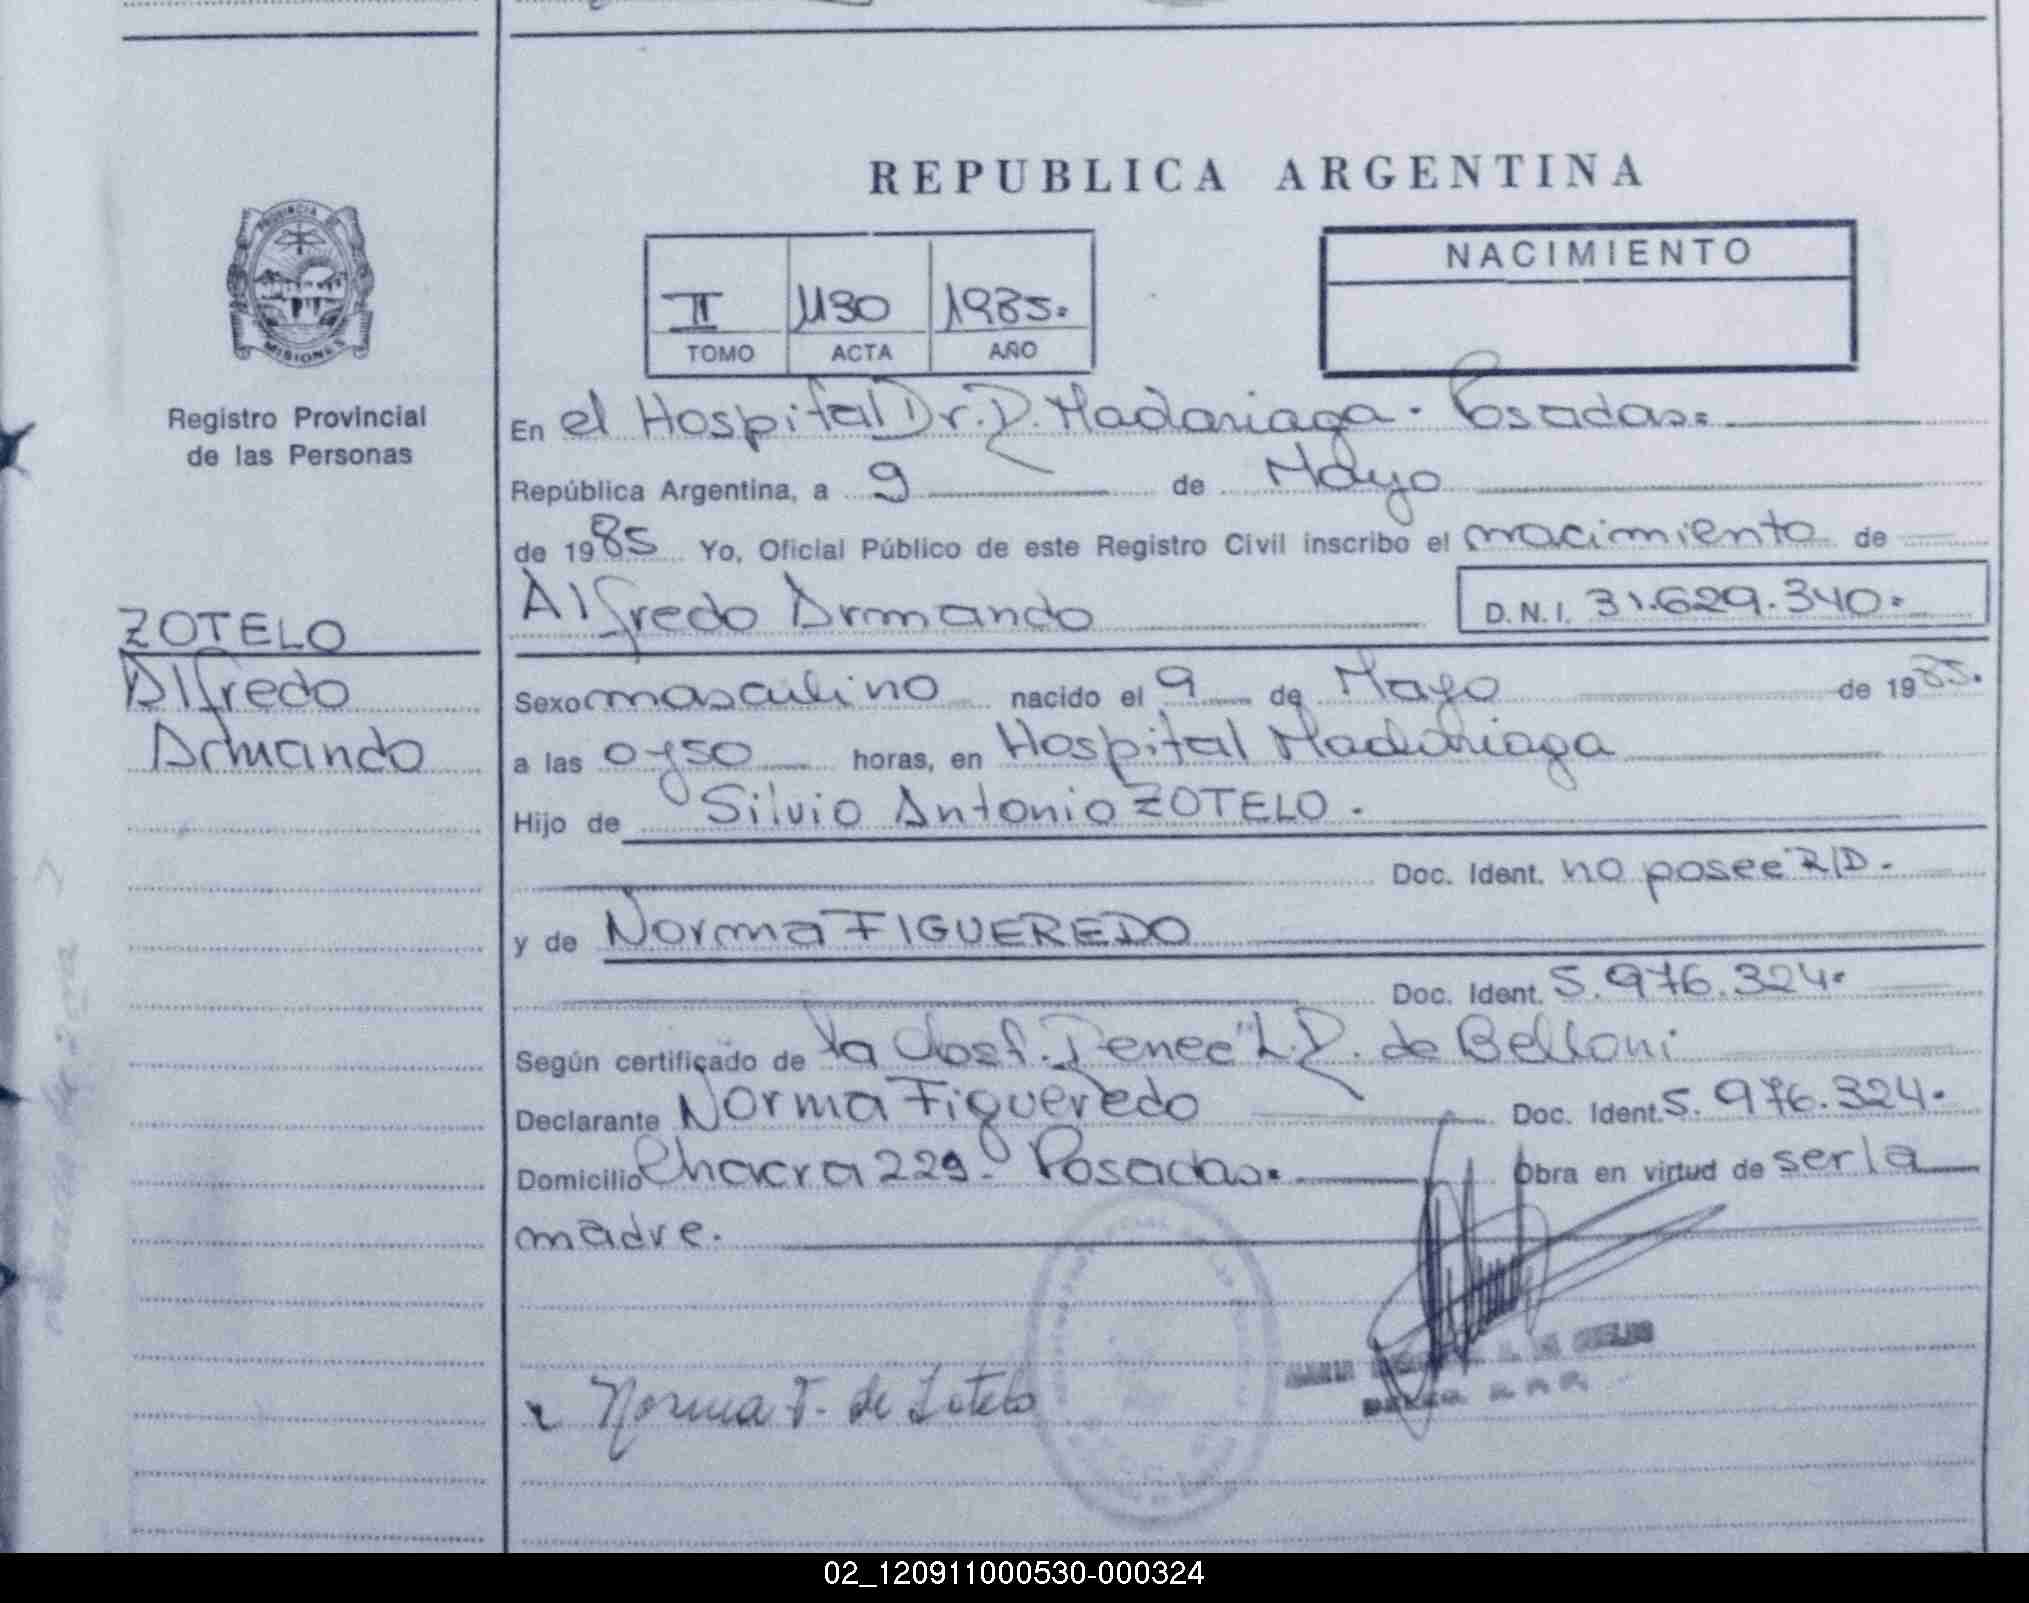 REPUBLICA ARGENTINA
PROVINCIA DE
MISIONES
Registro Provincial
de las Personas
II 1130 1985.
TOMO ACTA AÑO
NACIMIENTO
En el Hospital Dr. R. Madariaga - Posadas.
República Argentina, a 9 de Mayo
de 1985 Yo, Oficial Público de este Registro Civil inscribo el nacimiento de
Alfredo Armando D.N.I. 31.629.340.
ZOTELO
Alfredo
Armando
Sexo masculino nacido el 9 de Mayo de 1985.
a las 0y50 horas, en Hospital Madariaga
Hijo de Silvio Antonio ZOTELO.
Doc. Ident. no posee R/D.
y de Norma FIGUEREDO
Doc. Ident. 5.976.324.
Según certificado de la Obst. de Belloni
Declarante Norma Figueredo Doc. Ident. 5.976.324.
Domicilio Chacra 229- Posadas. Obra en virtud de ser la
madre.
Norma F. de Zotelo
02_120911000530-000324